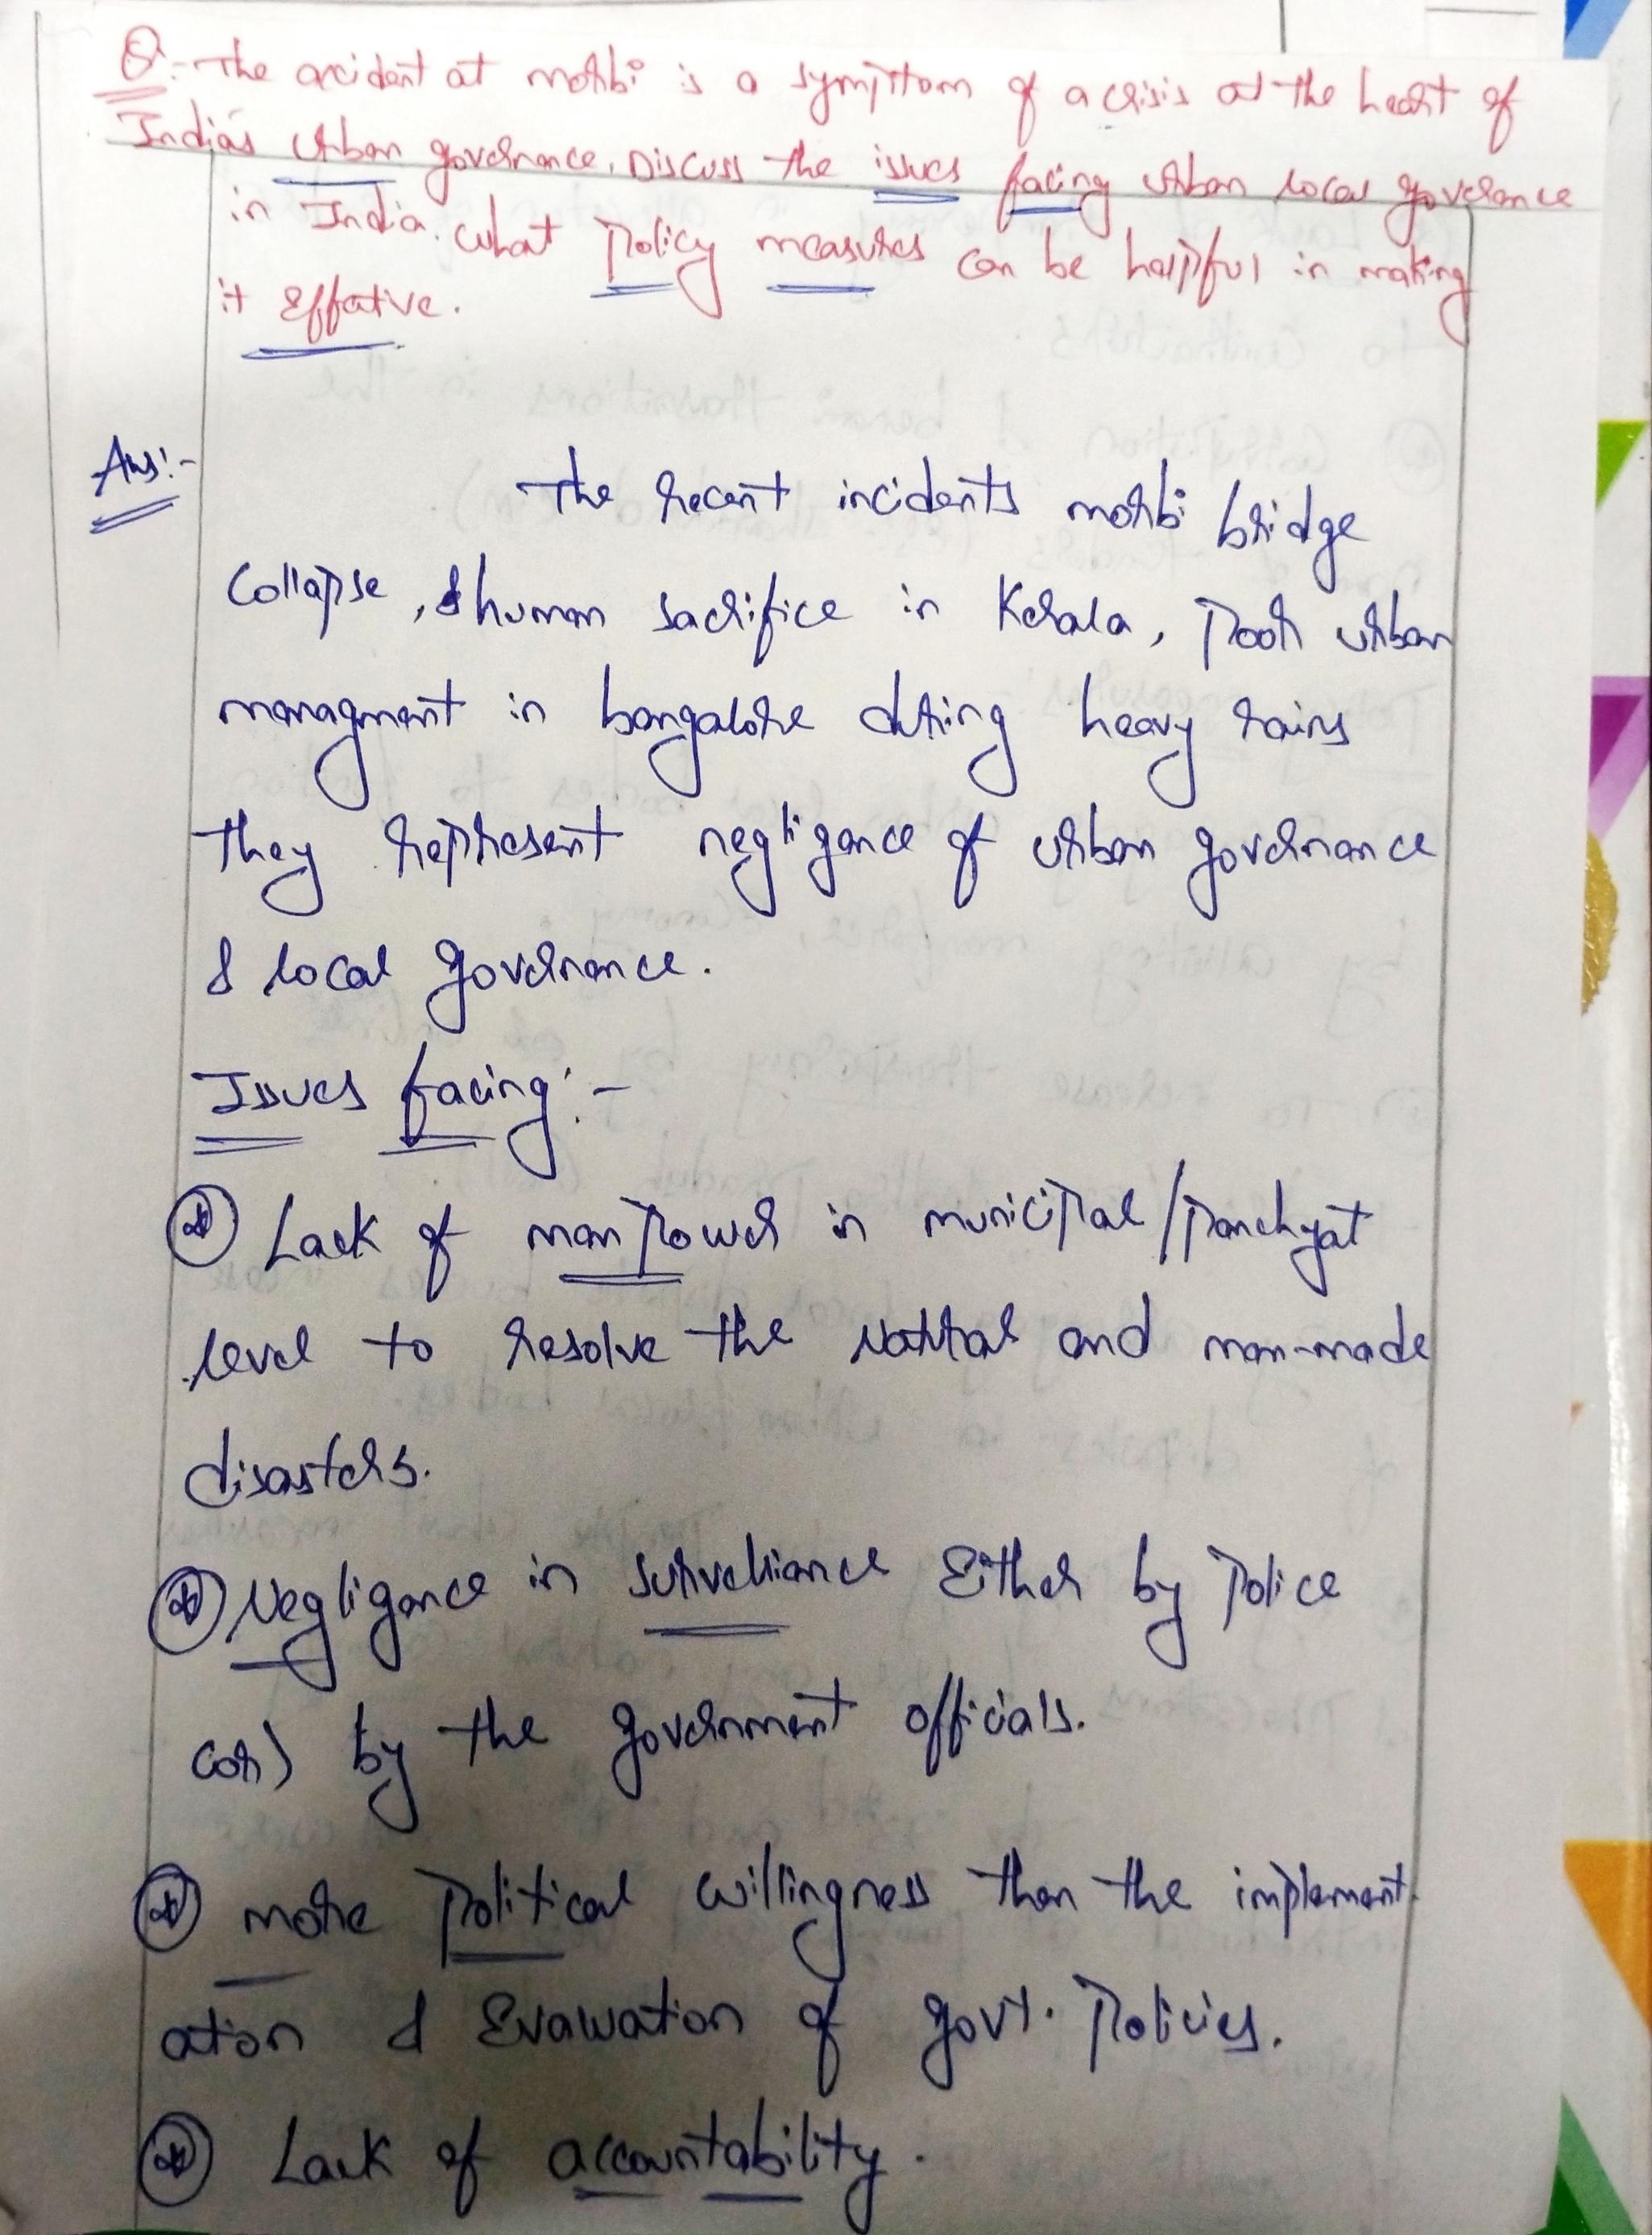 Q:- The accident at morbi is a symptom of a crisis at the heart of
India's urban governance. Discuss the issues facing urban local goverance
in India. What policy measures can be helpful in making
it effative.
Ans:-
The recent incidents morbi bridge
collapse, & human sacrifice in Kerala, poor urban
managment in bangalore during heavy rains
they represent negligance of urban governance
& local governance.
Issues facing:-
Lack of man power in municipal/panchyat
level to resolve the Natural and man-made
disasters.
Negligance in surveliance Either by police
(or) by the government officials.
more political willingness than the implement-
ation & Evaluation of govt. policies.
Lack of accountability.